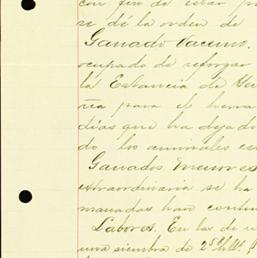 con fin de estar
se dé la orden de
Ganado Vacuno.
ocupado de reforzar
la Estancia de
ria para el
dias que ha dejado
do los animales
Ganados Menores
extraordinaria se ha
manadas han
Labores. En las de
una siembra de 25 Hlt.